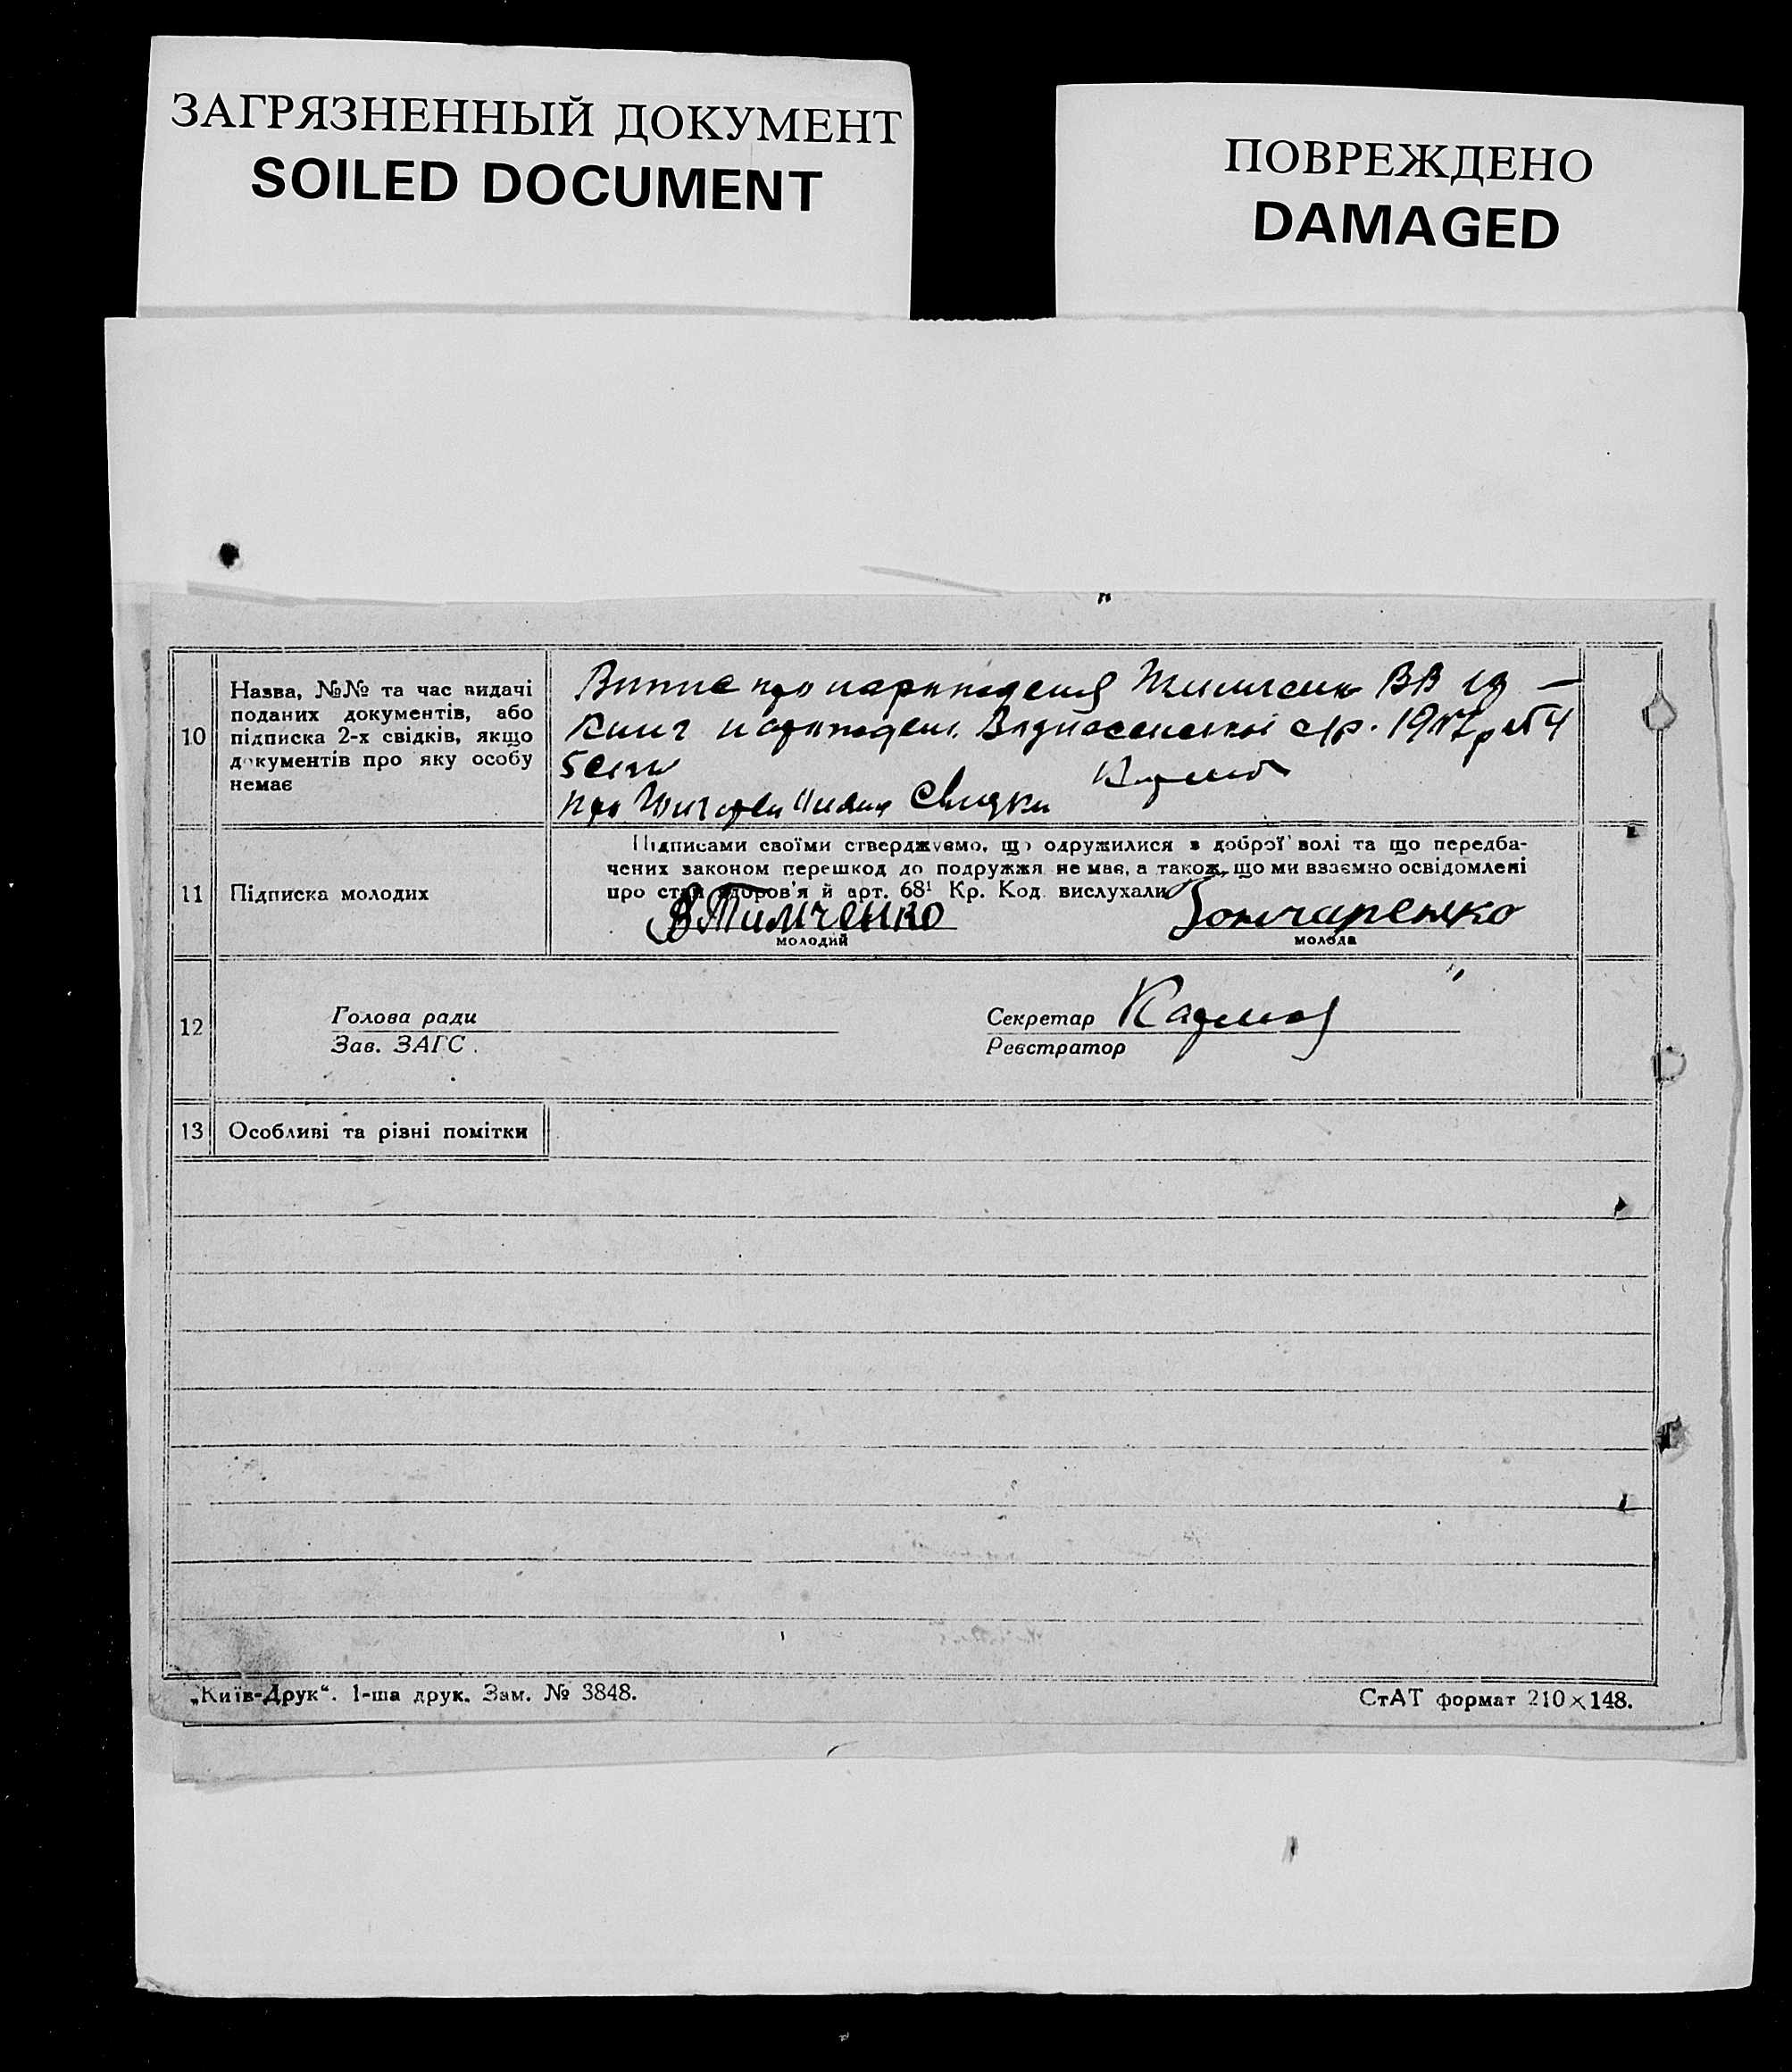 ЗАГРЯЗНЕННЫЙ ДОКУМЕНТ
SOILED DOCUMENT
ПОВРЕЖДЕНО
DAMAGED
10
Назва, №№ та час видачі
поданих документів, або
підписка 2-х свідків, якщо
документів про яку особу
немає
Випис про народження ВВ
книг
про Свідки
11
Підписка молодих
Підписами своїми стверджуємо, що одружилися в доброї волі та що передба-
чених законом перешкод до подружжя не має, а також, що ми взаємно освідомлені
про стан здоров'я й арт. 68¹ Кр. Код. вислухали
В Тимченко
молодий
Гончаренко
молода
12
Голова ради
Зав. ЗАГС.
Секретар
Реєстратор
13
Особливі та різні помітки
„Київ-Друк“. 1-ша друк. Зам. № 3848.
СтАТ формат 210×148.